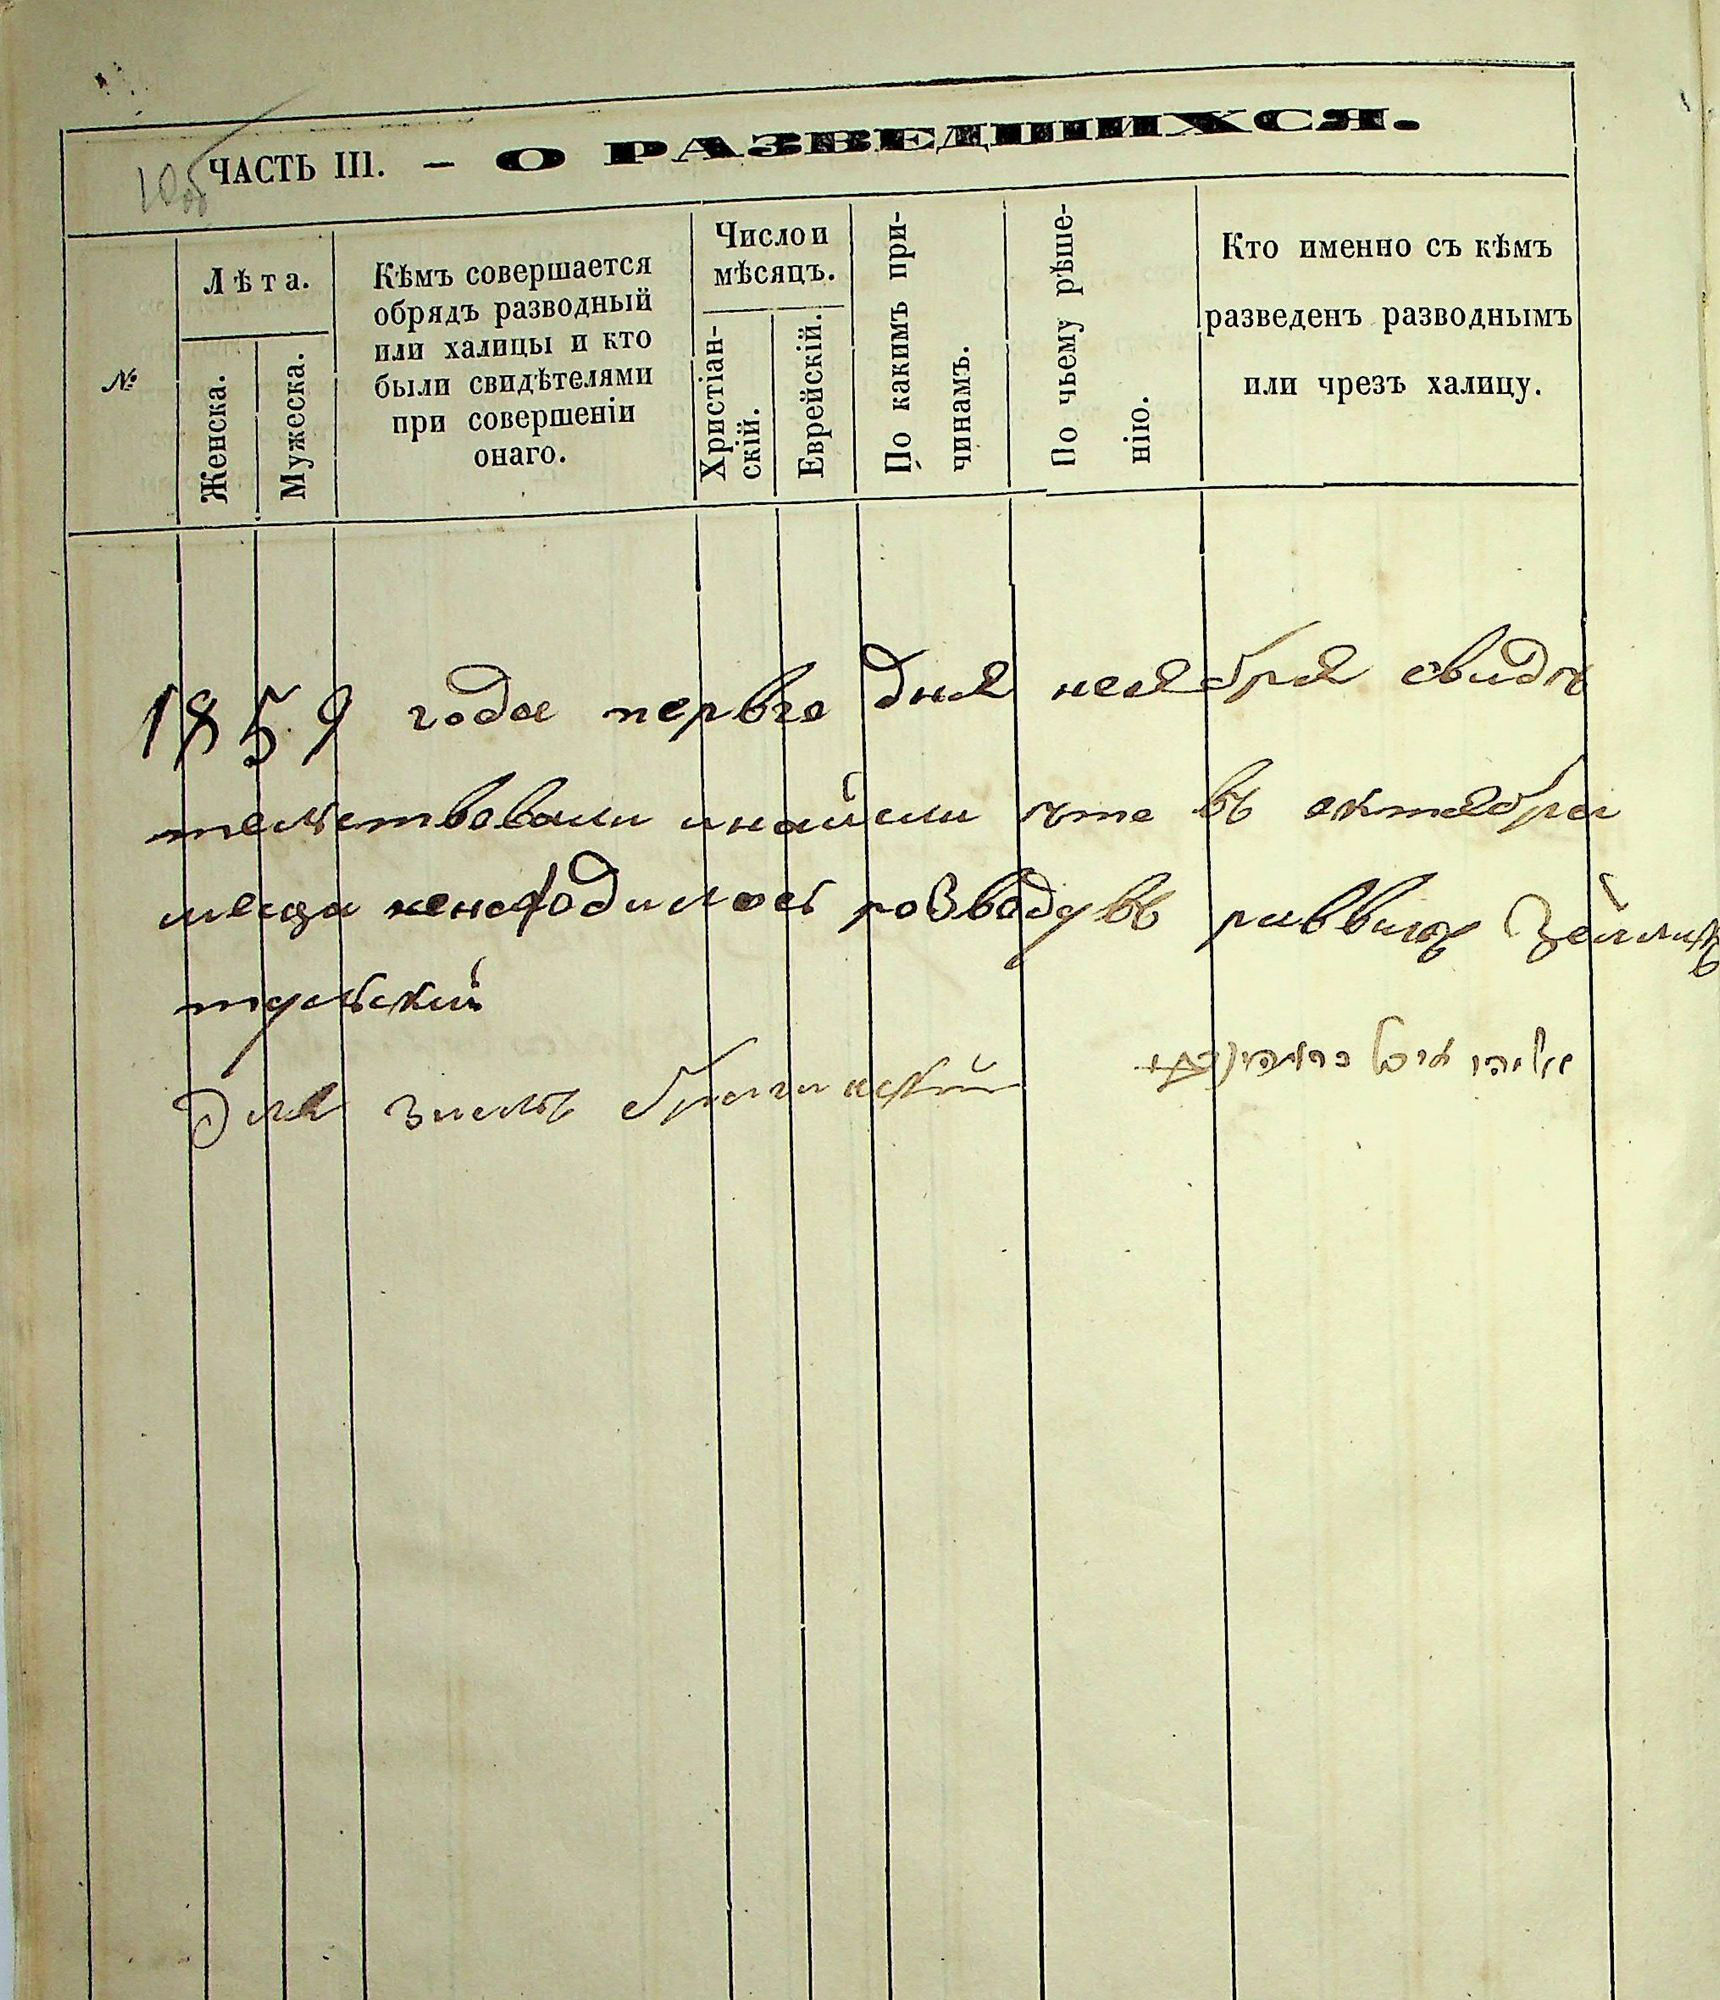 10об
ЧАСТЬ III. – О РАЗВЕДШИХСЯ.
№
Лѣта.
Женска.
Мужеска.
Кѣмъ совершается
обрядъ разводный
или халицы и кто
были свидѣтелями
при совершеніи
онаго.
Число и
мѣсяцъ.
Христіан-
скій.
Еврейскій.
По какимъ при-
чинамъ.
По чьему рѣше-
нію.
Кто именно съ кѣмъ
разведенъ разводнымъ
или чрезъ халицу.
1859 года перьво дня ноября свидѣ
тельствовали инайшли что въ октября
месца ненаходилось розводувъ раввинъ
тульский
Эля